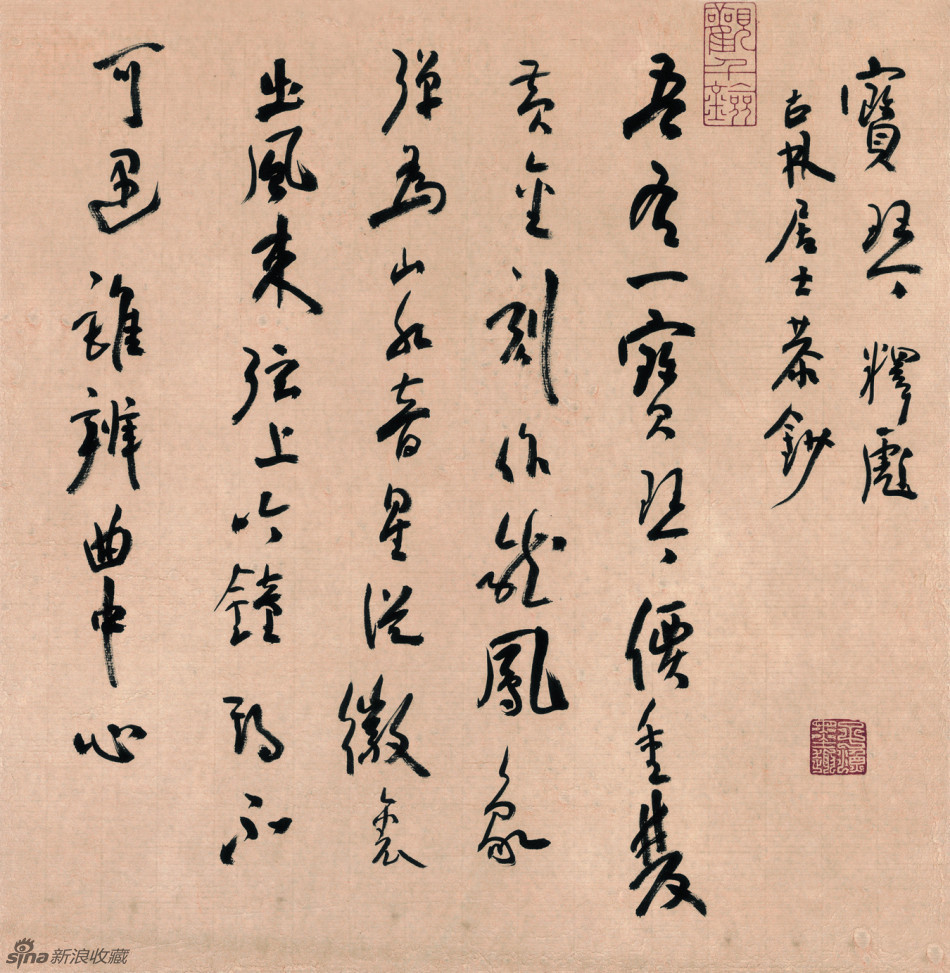 寶琴 釋彪
古林居士恭鈔
觀千劍
吾有一寶琴價重雙
黃金刻作龍鳳象
彈為山水音星從徽裏
出風來弦上吟鐘期不
可遇誰辨曲中心
sina新浪收藏